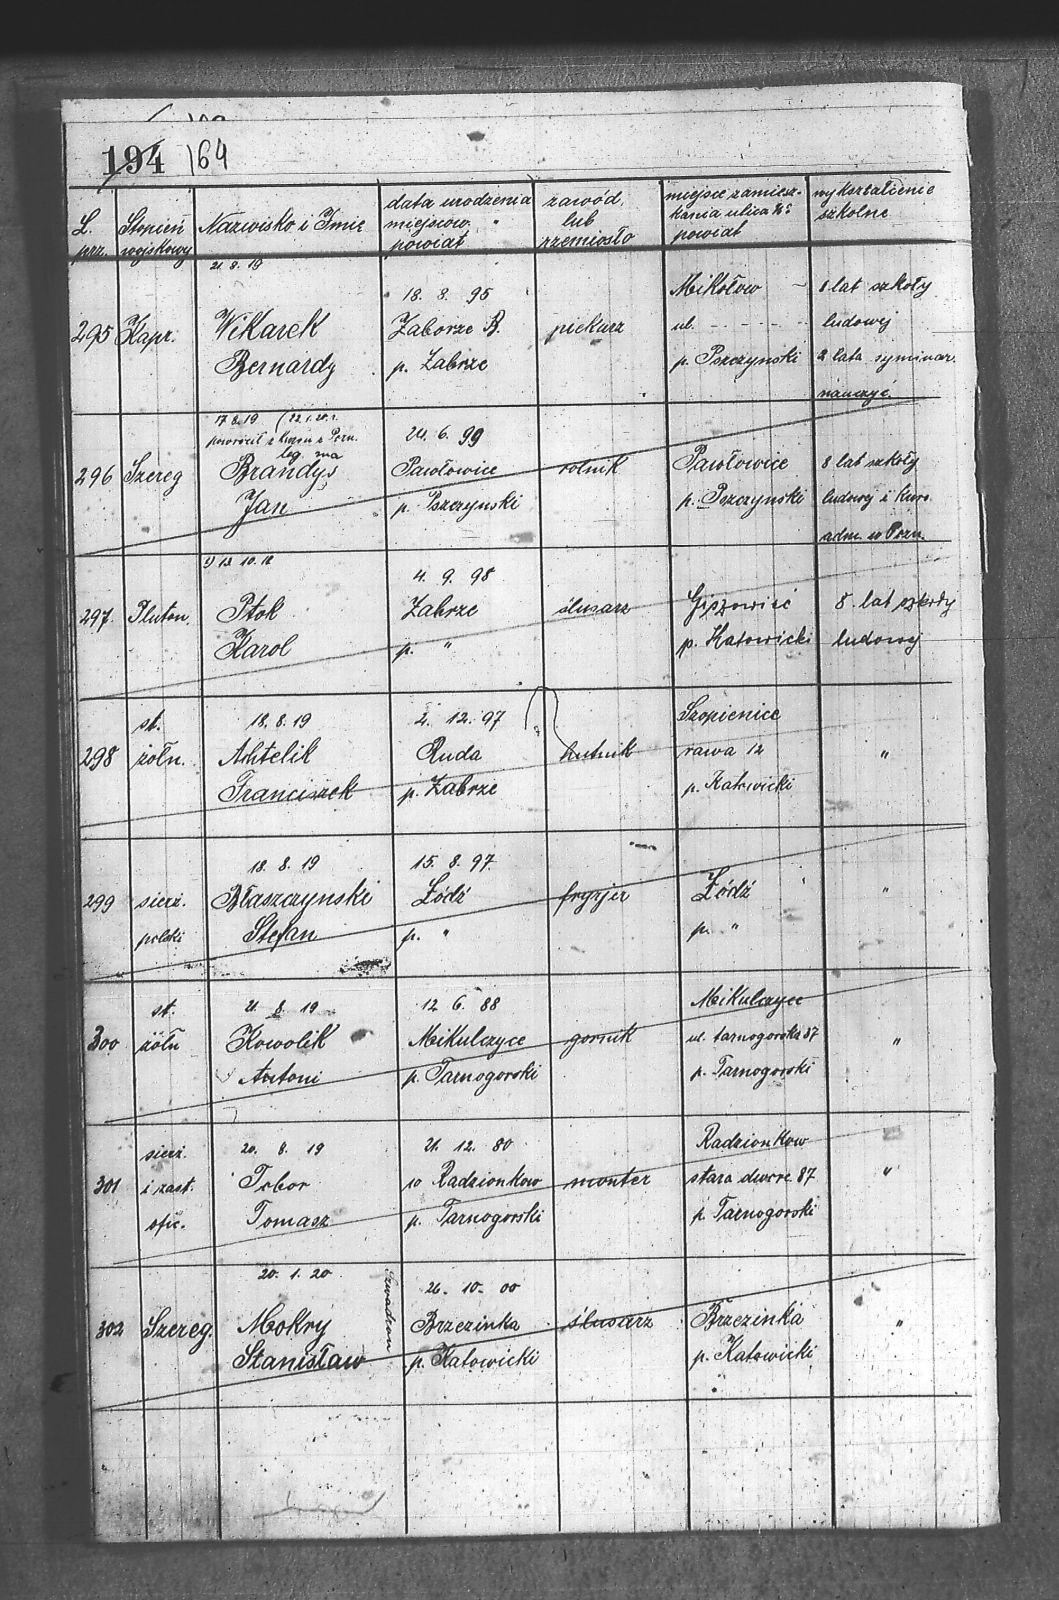 194 164
L. prz.
Stopień wojskowy
Nazwisko i Imię
data urodzenia miejscow. powiat
zawód lub rzemiosło
miejsce zamiesz- kania ulica No powiat
wykształcenie szkolne
21. 8. 19
18. 8. 95
Mikołów
8 lat szkoły
295 Kapr. Wikarek Zaborze B. piekarz ul. - - - - - ludowej
Bernardy p. Zabrze p. Pszczynski 2 lata syminar.
nauczyć.
17 8. 19 (22. 1. 20.
powrócił z Kursu z Pozn.
24. 6. 99
296 Szereg Brandys Pawłowice rolnik Pawłowice 8 lat szkoły
Jan p. Pszczynski p. Pszczynski ludowej i Kurs
adm. w Pozn.
13. 10. 18
4. 9. 98
297. Pluton. Ptok Zabrze ślusarz Giszowieć 8. lat szkoły
Karol p. " p. Katowicki ludowej
st. 18. 8. 19 2. 12. 97 Szopienice
298 żołn. Achtelik Ruda hutnik rawa 12 "
Franciszek p. Zabrze p. Katowicki
18. 8. 19 15. 8. 97.
299 sierż. Błaszczynski Łódź fryzjer Łódź "
polski Stefan p. " p. "
st. 21 8. 19 12 6. 88 Mikulczyce
300 żołn Kowolik Mikulczyce gornik ul. tarnogorska 37 "
Antoni p. Tarnogorski p. Tarnogorski
sierż. 20. 8. 19 21. 12. 80 Radzionkow
301 i zast. Tobor w Radzionkow monter stara dworc. 87 "
ofic. Tomasz p. Tarnogorski p. Tarnogorski
20. 1. 20 26. 10. 00
Szwadron
302 Szereg. Mokry Brzezinka ślusarz Brzezinka "
Stanisław p. Katowicki p. Katowicki